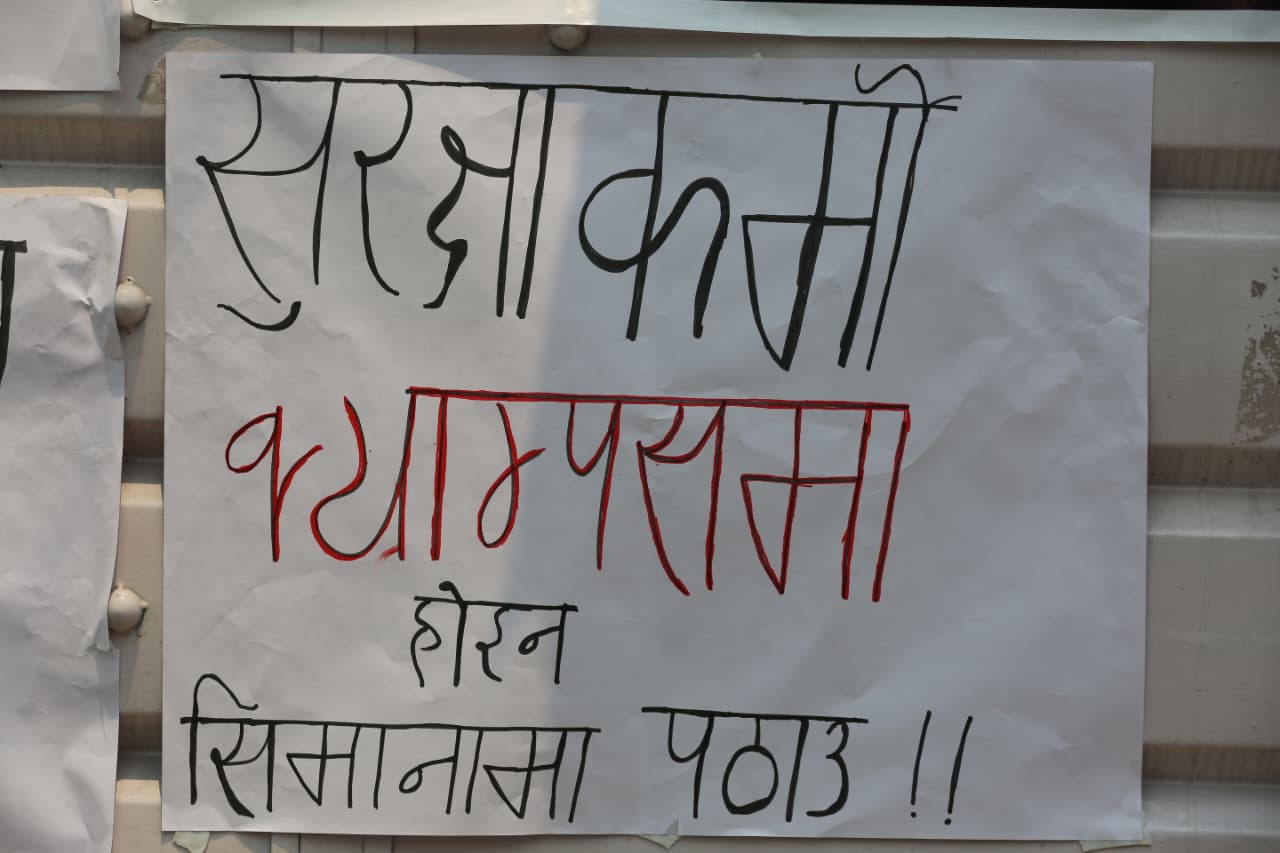 सुरक्षा कर्मी
क्याम्पसमा
होइन
सिमानामा पठाउ !!